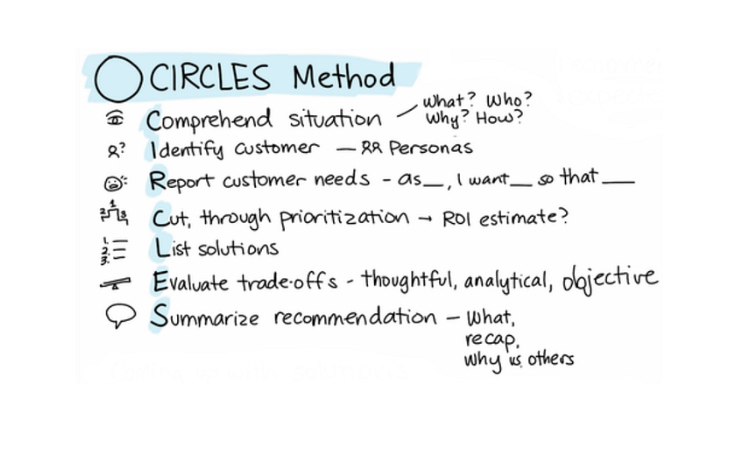 CIRCLES Method
Comprehend situation — What? Who?
Why? How?
Identify customer — Personas
Report customer needs - as__, I want__ so that __
Cut, through prioritization → ROI estimate?
1.
2.
3.
List solutions
Evaluate trade-offs - thoughtful, analytical, objective
Summarize recommendation — What,
recap,
why vs. others